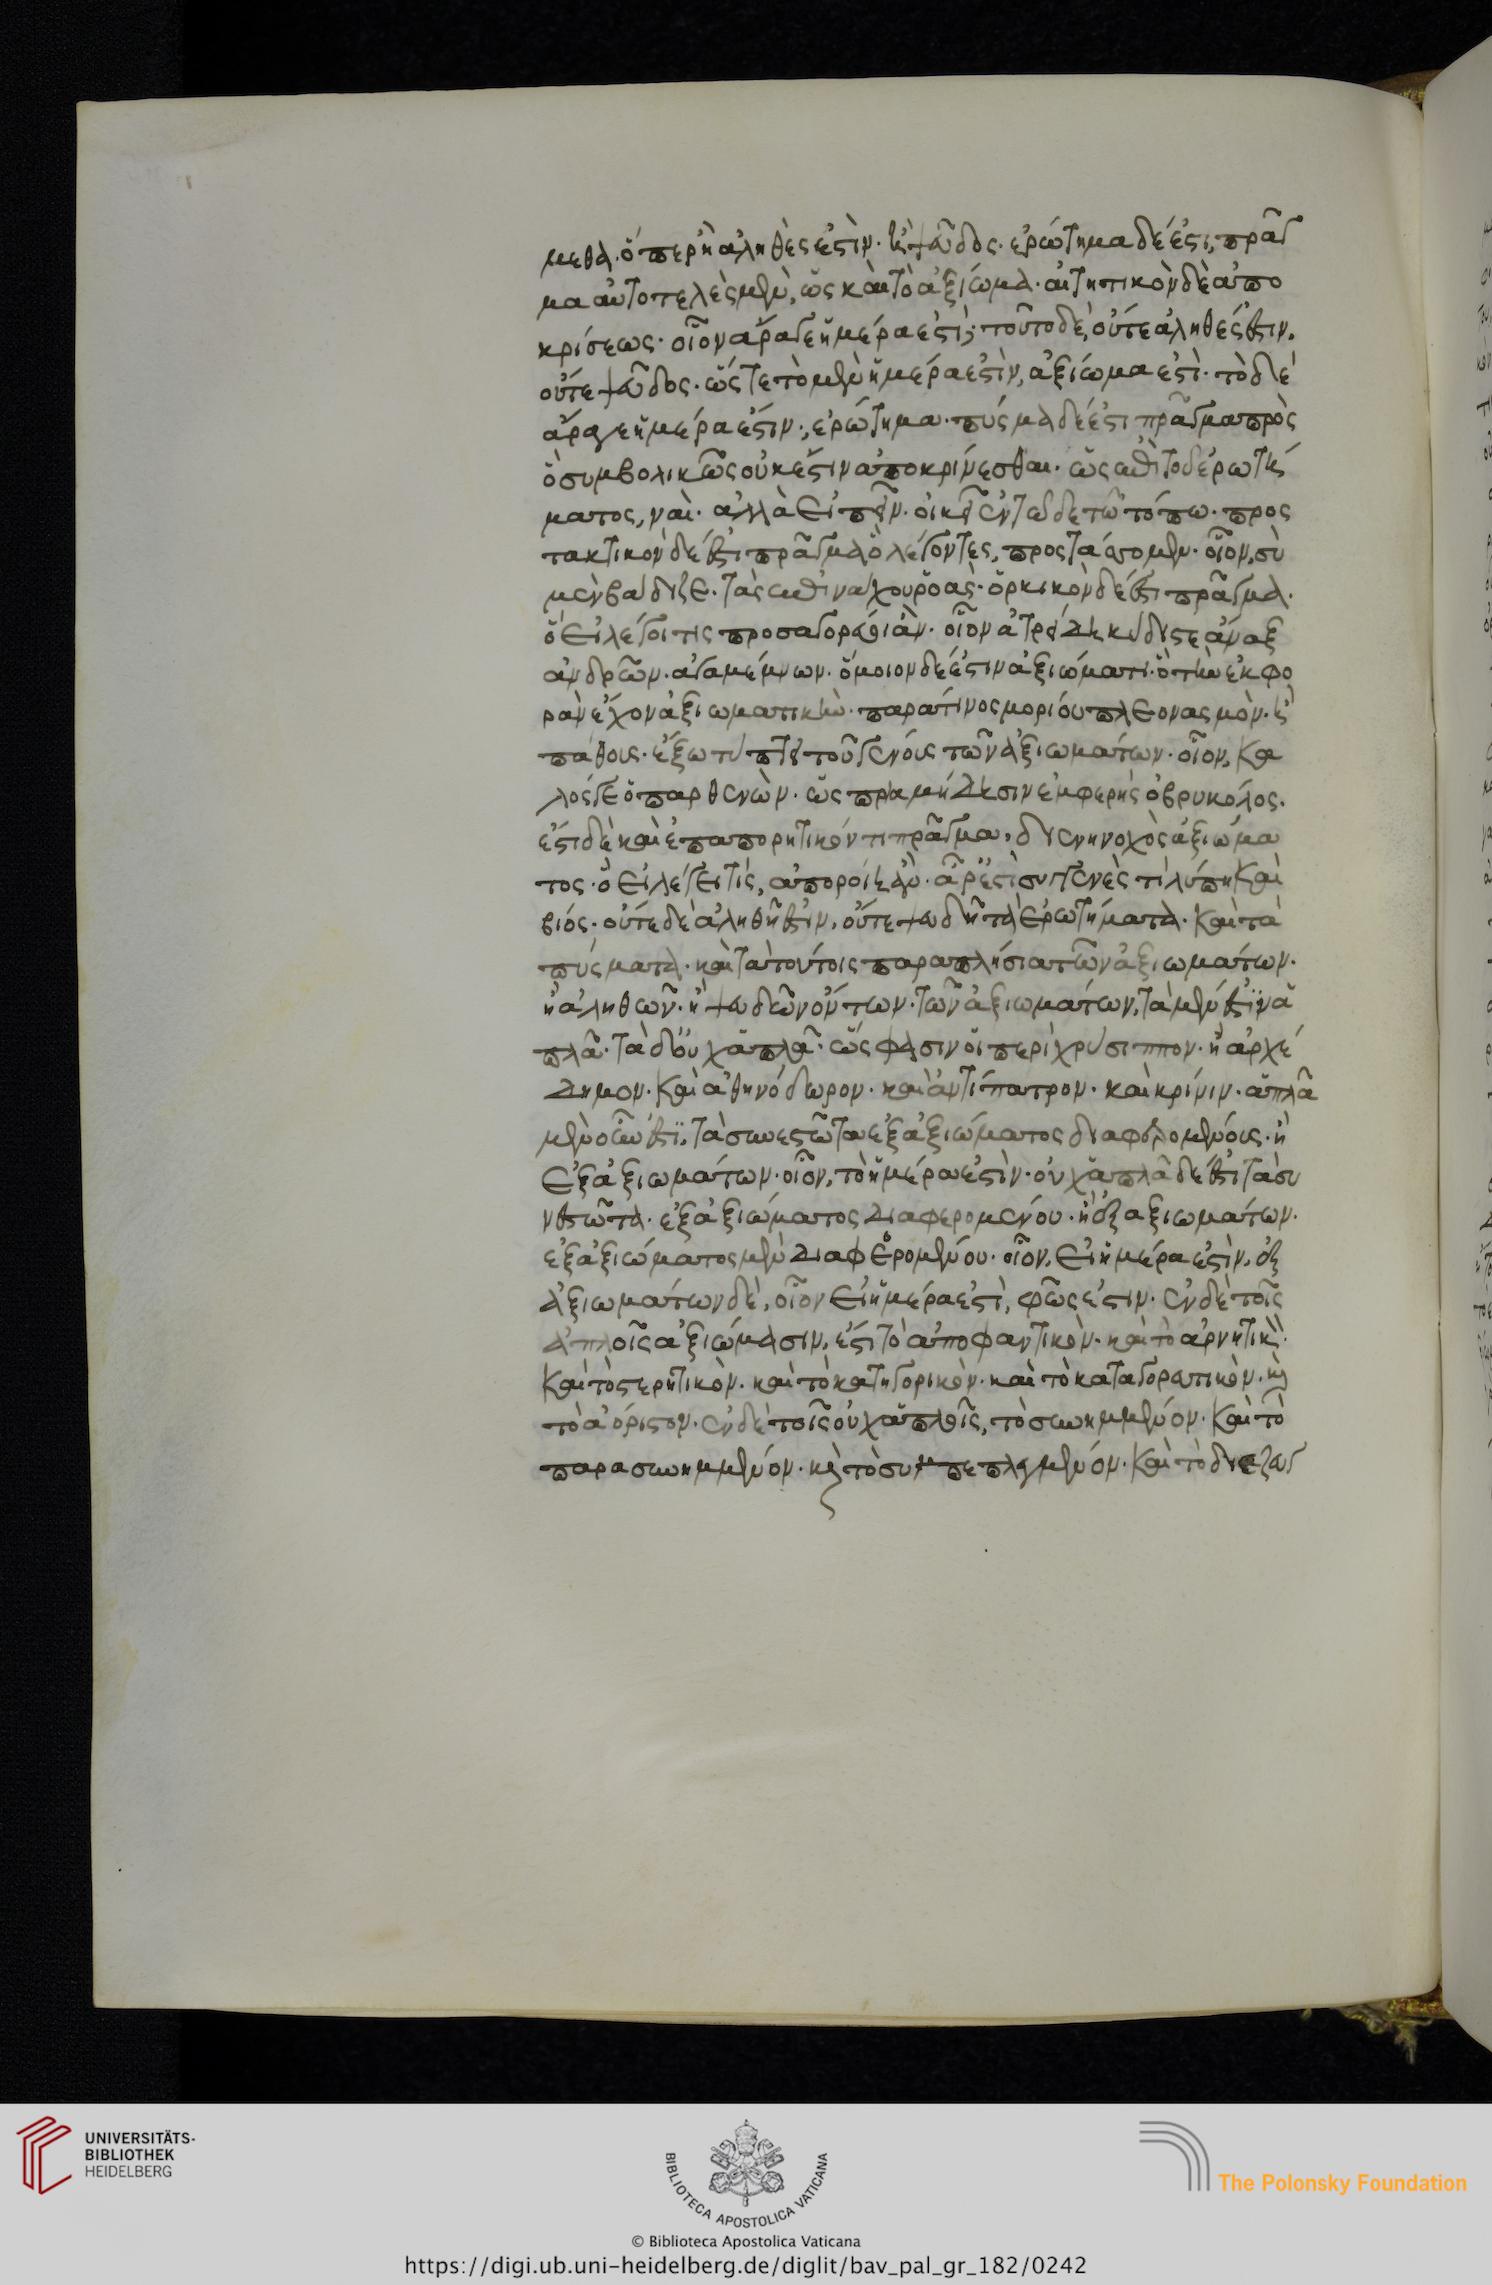 μεθα. ὅπερ ἢ ἀληθές ἐστιν. ἢ ψεῦδος. ἐρώτημα δέ ἐστι, πρᾶγ
μα αὐτοτελὲς μὲν, ὡς καὶ τὸ ἀξίωμα. αἰτητικὸν δὲ ἀπο
κρίσεως. οἷον ἆρά γε ἡμέρα ἐστί; τοῦτο δὲ, οὔτε ἀληθές ἐστιν,
οὔτε ψεῦδος. ὥστε τὸ μὲν ἡμέρα ἐστὶν, ἀξίωμα ἐστί. τὸ δὲ
ἆρά γε ἡμέρα ἐστίν, ἐρώτημα. πύσμα δέ ἐστι πρᾶγμα πρὸς
ὃ συμβολικῶς οὐκ ἔστιν ἀποκρίνεσθαι. ὡς ἐπὶ τοῦ ἐρωτή
ματος, ναί. ἀλλὰ εἰπεῖν. οἰκεῖ ἐν τῷδε τῷ τόπω. προς
τακτικὸν δέ ἐστι πρᾶγμα ὃ λέγοντες, προστάσσομεν. οἷον, σὺ
μὲν βάδιζε. τὰς ἐπ' ἰνάχου ῥοάς. ὁρκικὸν δέ ἐστι πρᾶγμα.
ὃ εἰ λέγοι τις προσαγορεύοι ἄν. οἷον ἀτρείδη κύδιστε ἄναξ
ἀνδρῶν. ἀγαμέμνων. ὅμοιον δέ ἐστιν ἀξιώματι. ὃ τὴν ἐκφο
ρὰν ἔχον ἀξιωματικὴν. παρά τινος μορίου πλεονασμὸν. ἢ
πάθους. ἔξω πίπτει τοῦ γένους τῶν ἀξιωμάτων. οἷον, κα
λός γε ὁ παρθενών. ὡς πριαμίδησιν ἐμφερὴς ὁ βουκόλος.
ἔστι δὲ καὶ ἐπαπορητικόν τι πρᾶγμα, διενηνοχὸς ἀξιώμα
τος. ὃ εἰ λέγει τις, ἀποροίη ἄν. ἆρ' ἔστι συγγενὲς τι λύπη καὶ
βίος. οὔτε δὲ ἀληθῆ ἐστιν, οὔτε ψευδῆ τὰ ἐρωτήματα. καὶ τὰ
πύσματα. καὶ τὰ τούτοις παραπλήσια τῶν ἀξιωμάτων.
ἢ ἀληθῶν. ἢ ψευδῶν ὄντων. τῶν ἀξιωμάτων, τὰ μέν ἐστιν ἁ
πλᾶ. τὰ δ' οὐχ ἁπλᾶ. ὥς φασιν οἱ περὶ χρύσιππον. ἢ ἀρχέ
δημον. καὶ ἀθηνόδωρον. καὶ ἀντίπατρον. καὶ κρίνιν. ἁπλᾶ
μὲν οὖν ἐστι, τὰ συνεστῶτα ἐξ ἀξιώματος διαφερομένους. ἢ
ἐξ ἀξιωμάτων. οἷον, τὸ ἡμέρα ἐστίν. οὐχ ἁπλᾶ δέ ἐστι τὰ συ
νεστῶτα. ἐξ ἀξιώματος διαφερομένου. ἢ ἐξ ἀξιωμάτων.
ἐξ ἀξιώματος μὲν διαφερομένου. οἷον, εἰ ἡμέρα ἐστὶν, ἐξ
ἀξιωμάτων δὲ, οἷον εἰ ἡμέρα ἐστὶ, φῶς ἐστιν. ἐν δὲ τοῖς
ἁπλοῖς ἀξιώμασιν, ἐστὶ τὸ ἀποφαντικὸν. καὶ τὸ ἀρνητικὸν.
καὶ τὸ στερητικὸν. καὶ τὸ κατηγορικὸν. καὶ τὸ καταγορευτικὸν. καὶ
τὸ ἀόριστον. ἐν δὲ τοῖς οὐχ ἁπλοῖς, τὸ συνημμένον. καὶ τὸ
παρασυνημμένον. καὶ τὸ συμπεπλεγμένον. καὶ τὸ διεζευγ
UNIVERSITÄTS-
BIBLIOTHEK
HEIDELBERG
BIBLIOTECA APOSTOLICA VATICANA
The Polonsky Foundation
© Biblioteca Apostolica Vaticana
https://digi.ub.uni-heidelberg.de/diglit/bav_pal_gr_182/0242